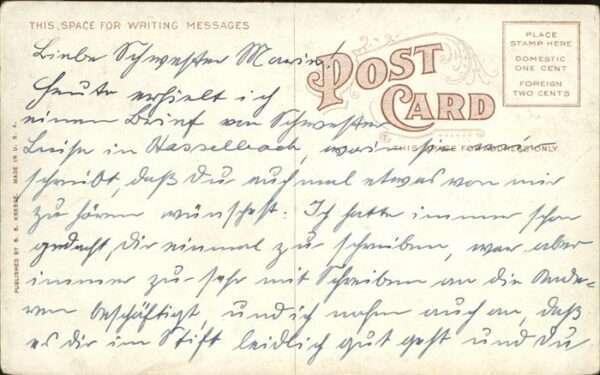 THIS SPACE FOR WRITING MESSAGES
POST CARD
PLACE
STAMP HERE
DOMESTIC
ONE CENT
FOREIGN
TWO CENTS
THIS SPACE FOR ADDRESS ONLY
PUBLISHED BY S. S. KRESGE. MADE IN U. S. A.
Liebe Schwester Marie!
Heute erhielt ich
einen Brief von Schwester
Luise in Hasselbach, worin sie
schreibt, daß du auch mal etwas von mir
zu hören wünschest. Ich hatte immer schon
gedacht, dir einmal zu schreiben, war aber
immer zu sehr mit Schreiben an die Ande-
ren beschäftigt, und ich nahm auch an, daß
es dir im Stift leidlich gut geht und du